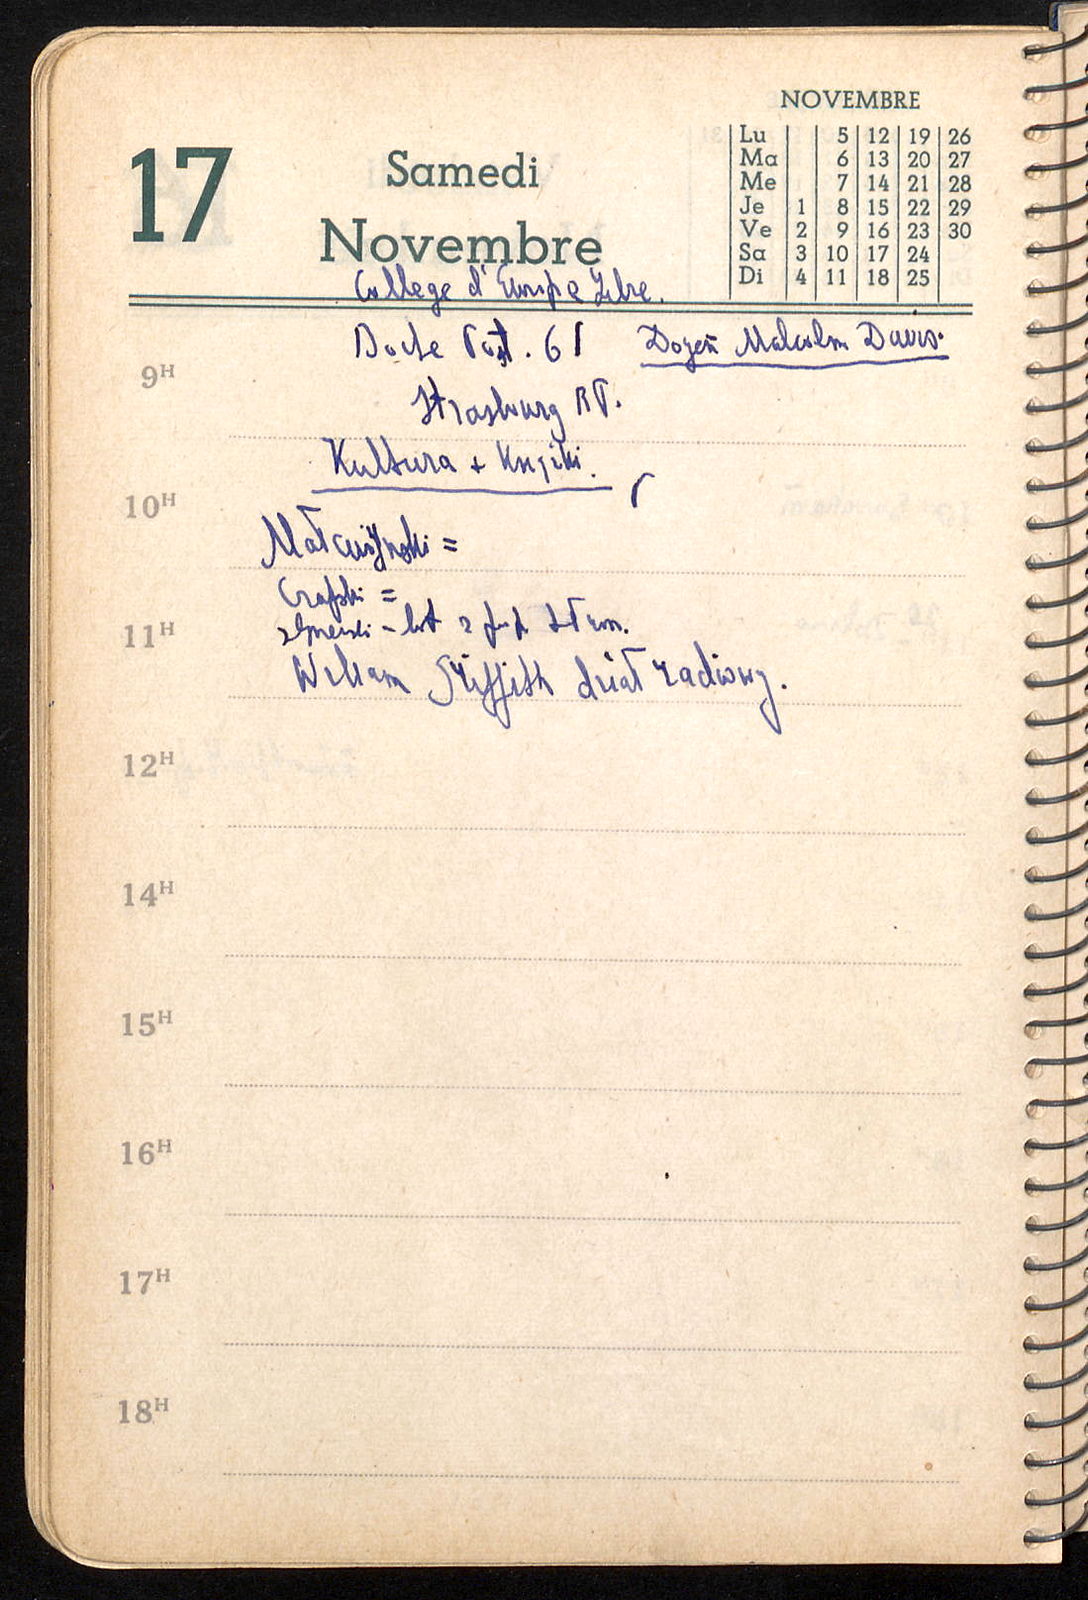 NOVEMBRE
Lu 5 12 19 26
Ma 6 13 20 27
Me 7 14 21 28
Je 1 8 15 22 29
Ve 2 9 16 23 30
Sa 3 10 17 24
Di 4 11 18 25
17 Samedi
Novembre
College d'Europe Libre.
Boite Post. 61 Doyen Malcolm Davis.
9H
Strasburg
Kultura + Książki.
10H
Małcużyński =
Czapski =
11H
William Griffith dział radiowy.
12H
14H
15H
16H
17H
18H